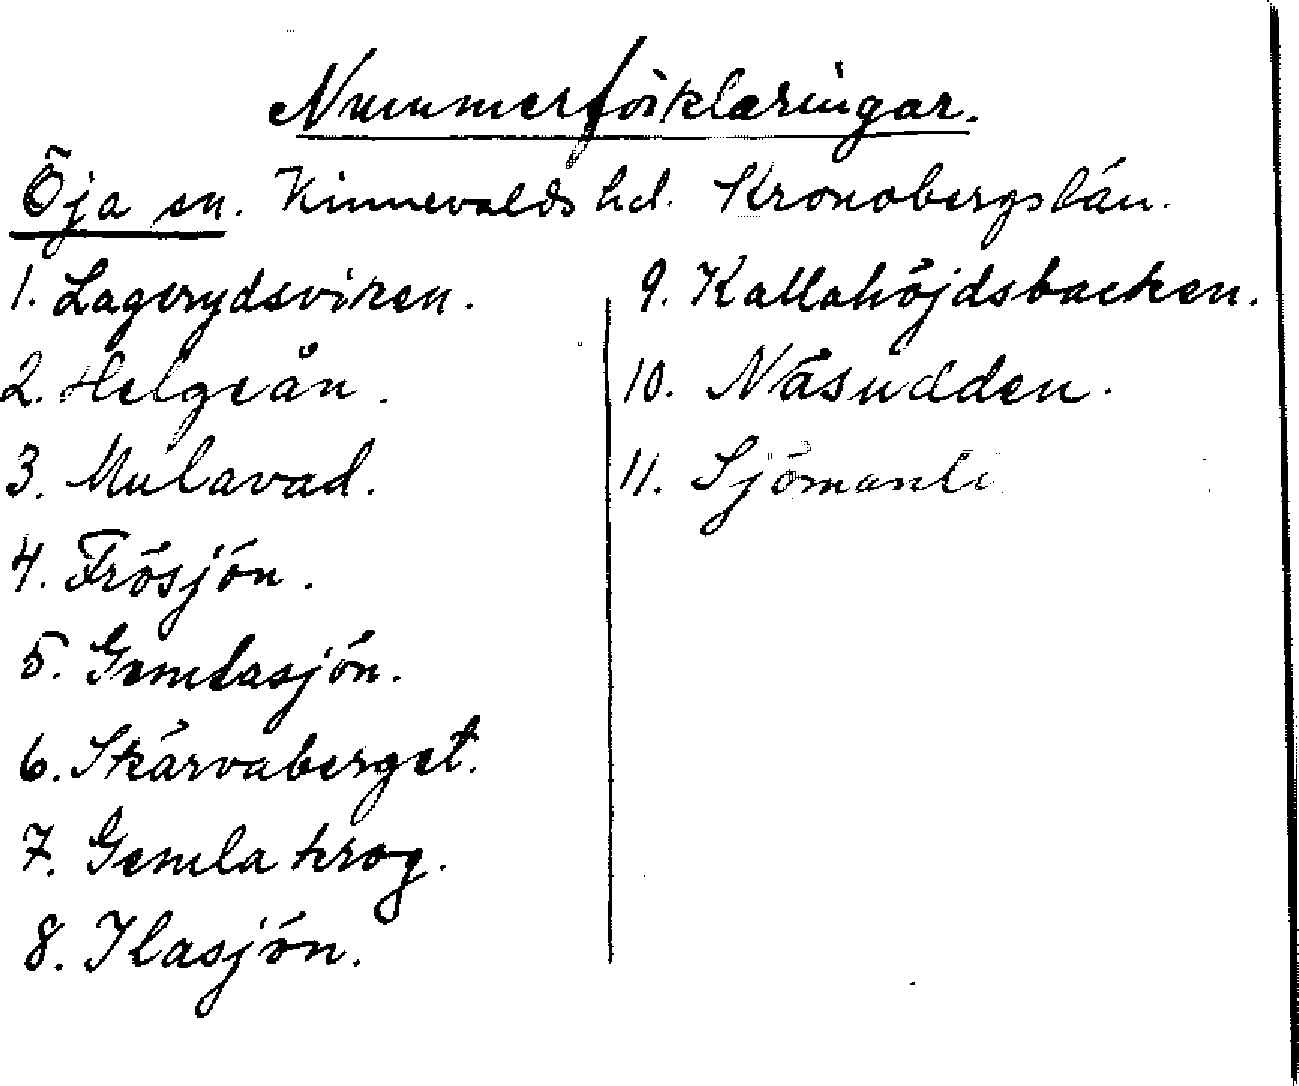 Nummerförklaringar.
Öja sn. Kinnevalds hd. Kronobergs län.
1. Lagerydsviken.
2. Helgeån.
3. Mulavad.
4. Frösjön.
5. Gemlasjön.
6. Skärvaberget.
7. Gemla krog.
8. Ilasjön.
9. Kallahöjdsbacken.
10. Näsudden.
11. Sjömanli